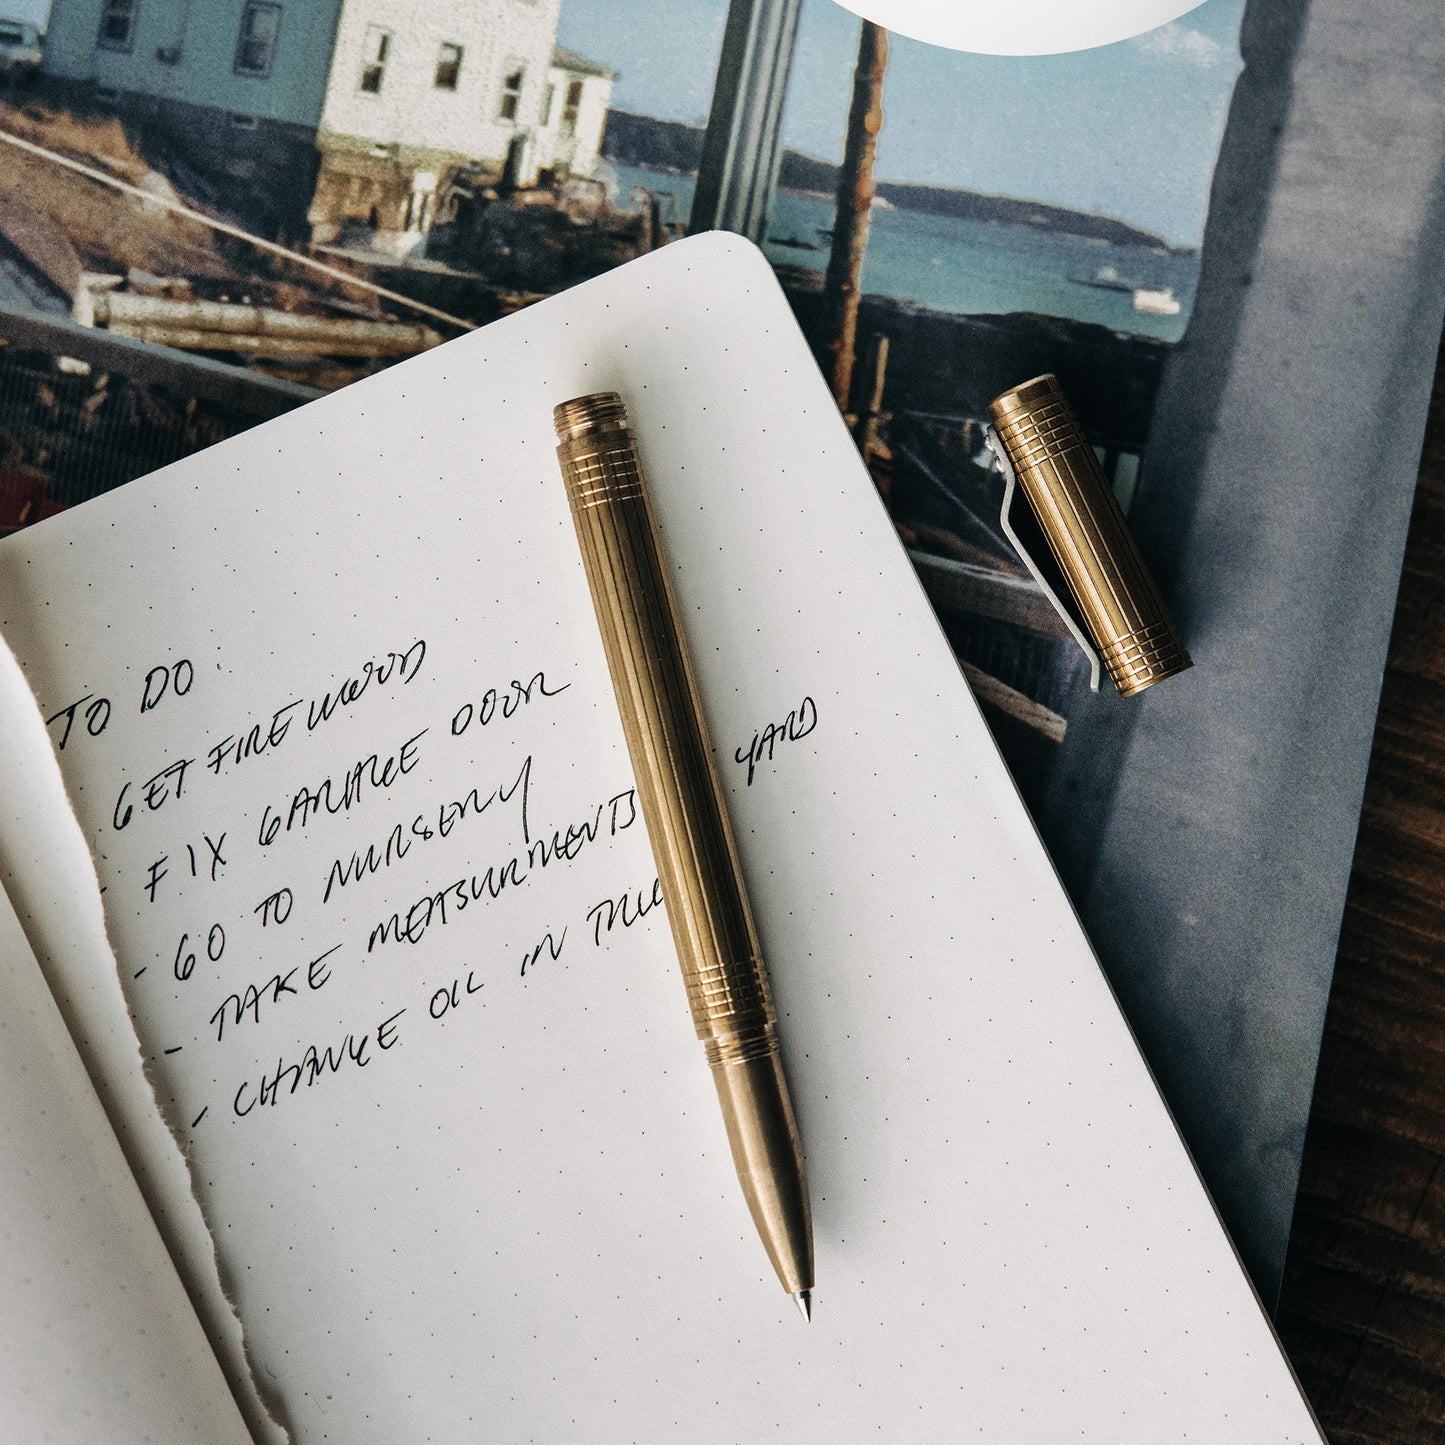 TO DO:
GET FIREWOOD
- FIX GARAGE DOOR
- GO TO NURSERY
- TAKE MEASUREMENTS YARD
- CHANGE OIL IN